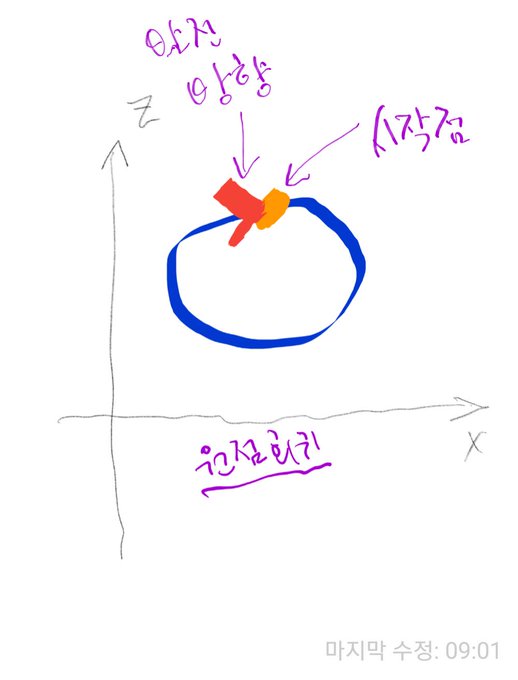 안전
방향
시작점
Z
X
원점회귀
마지막 수정: 09:01